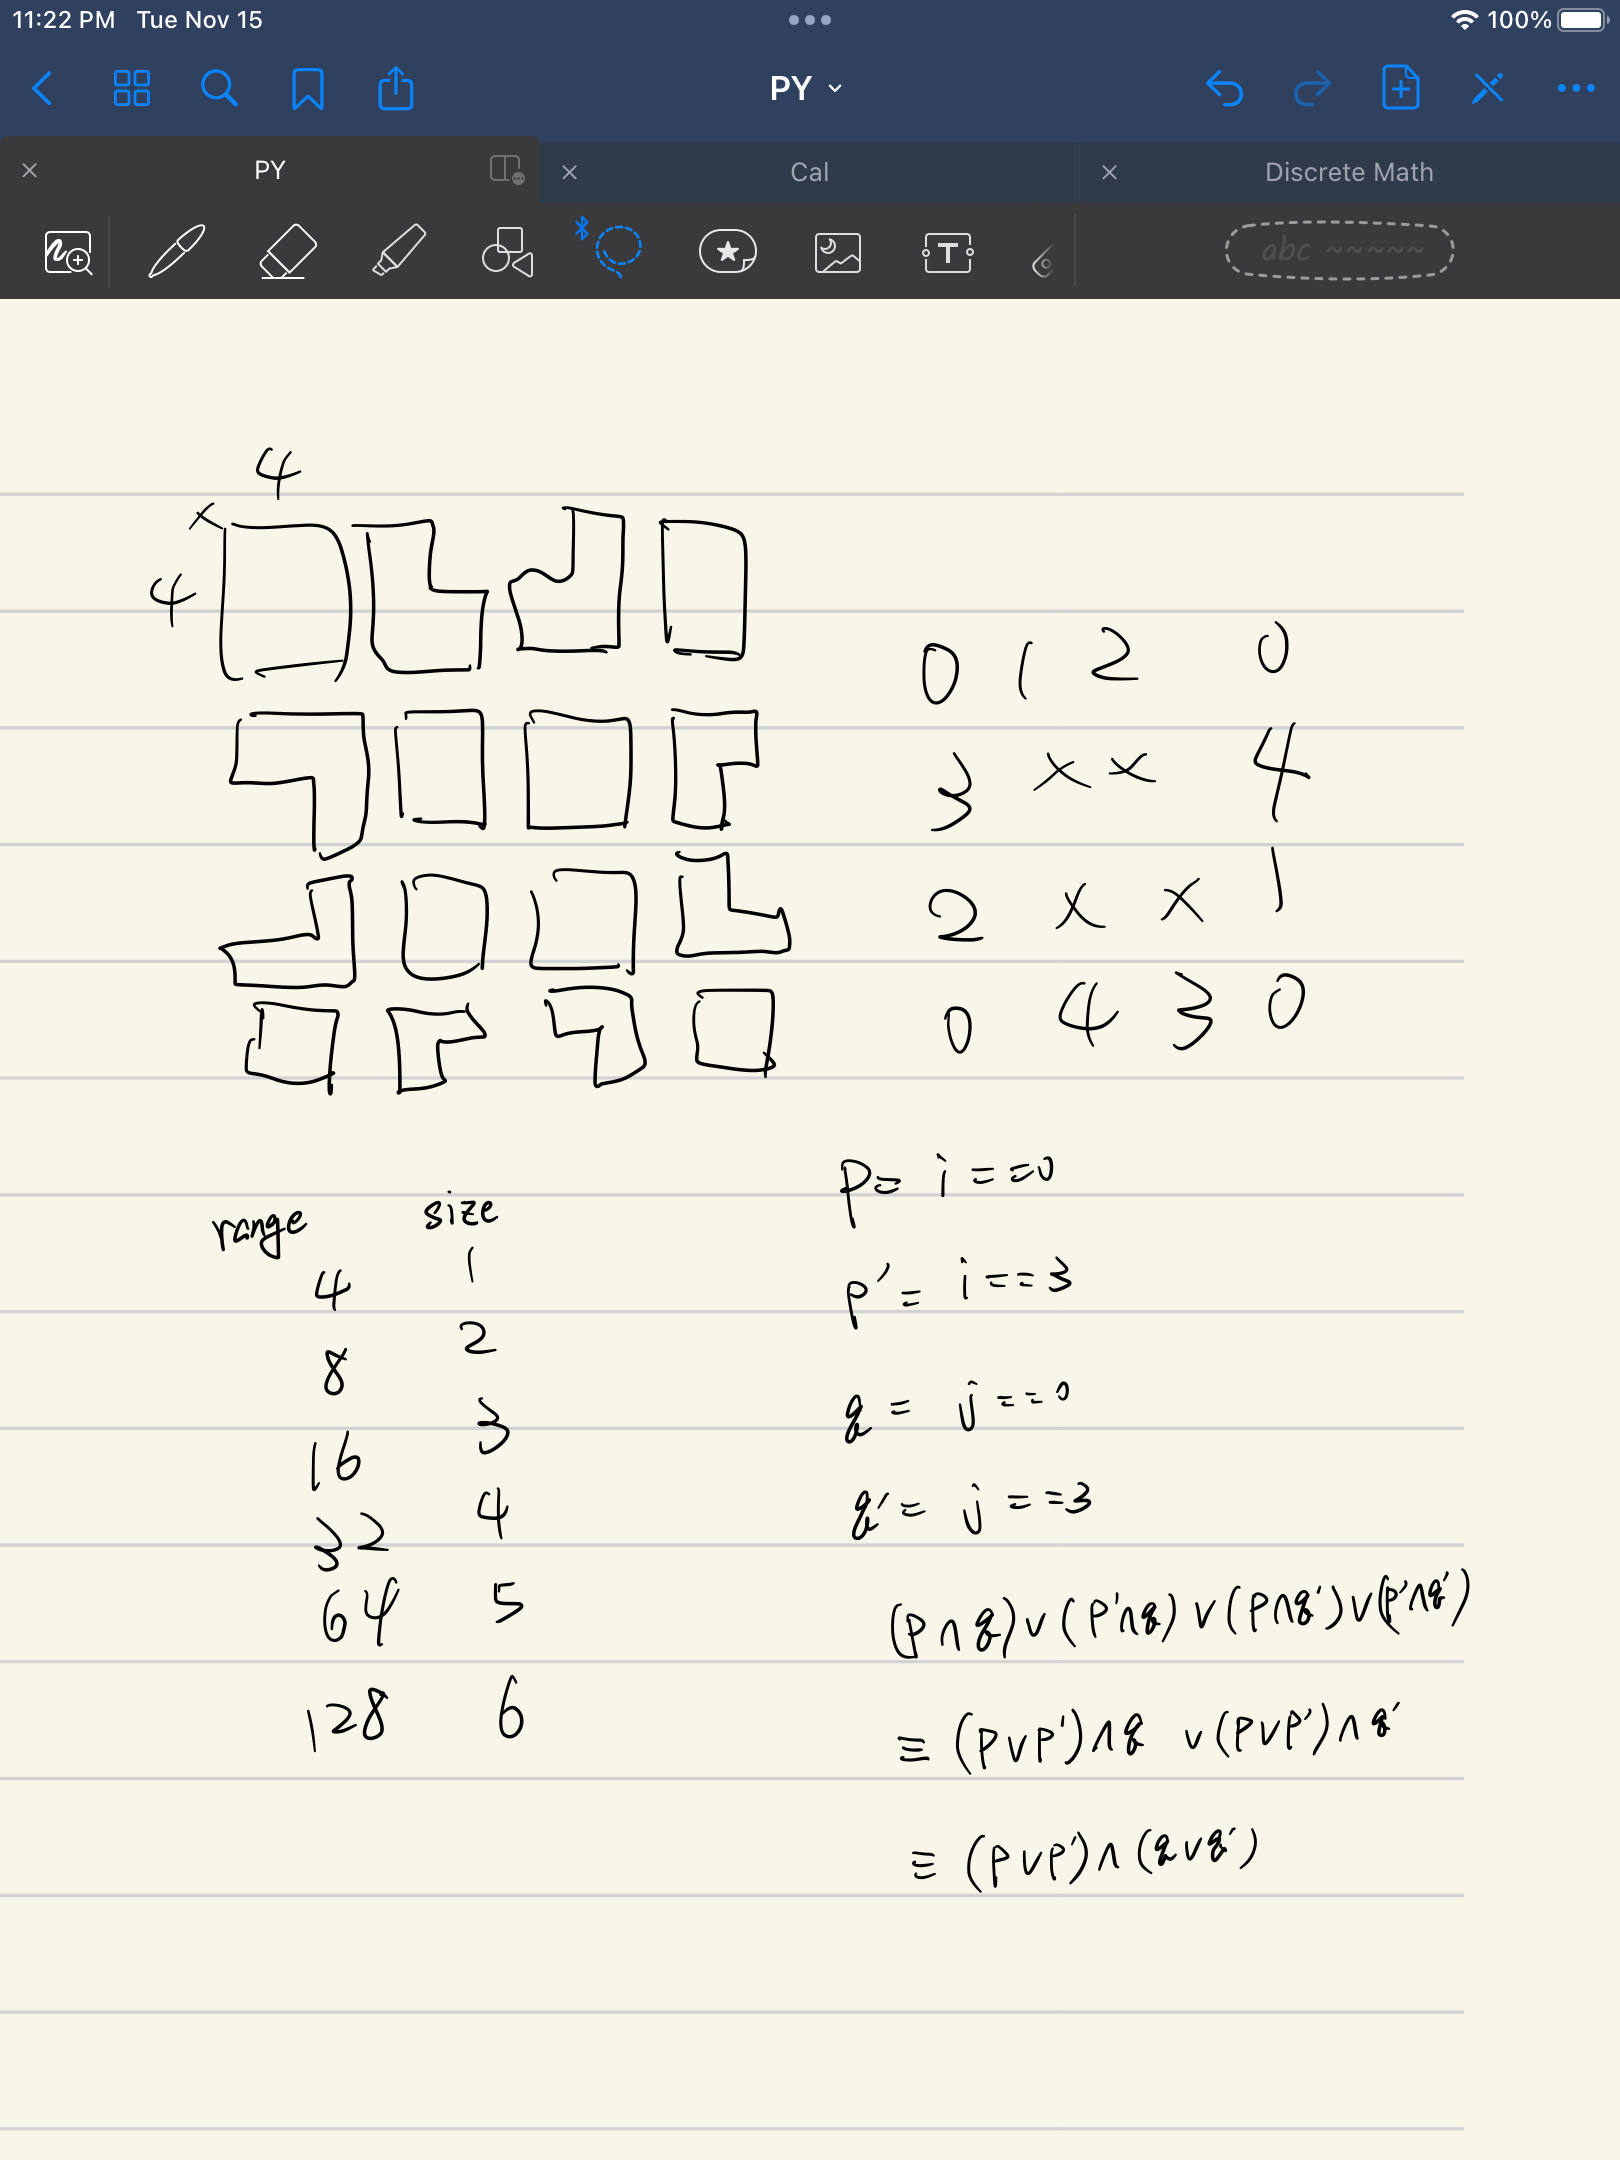 11:22 PM Tue Nov 15
100%
PY
PY
Cal
Discrete Math
T
abc ~~~~~
4
×
4
0 1 2 0
3 × × 4
2 × × 1
0 4 3 0
range size
4 1
8 2
16 3
32 4
64 5
128 6
P= i ==0
P'= i ==3
q = j ==0
q' = j ==3
(P∧q)∨(P'∧q)∨(P∧q')∨(P'∧q')
≡ (P∨P')∧q ∨(P∨P')∧q'
≡ (P∨P')∧(q∨q')